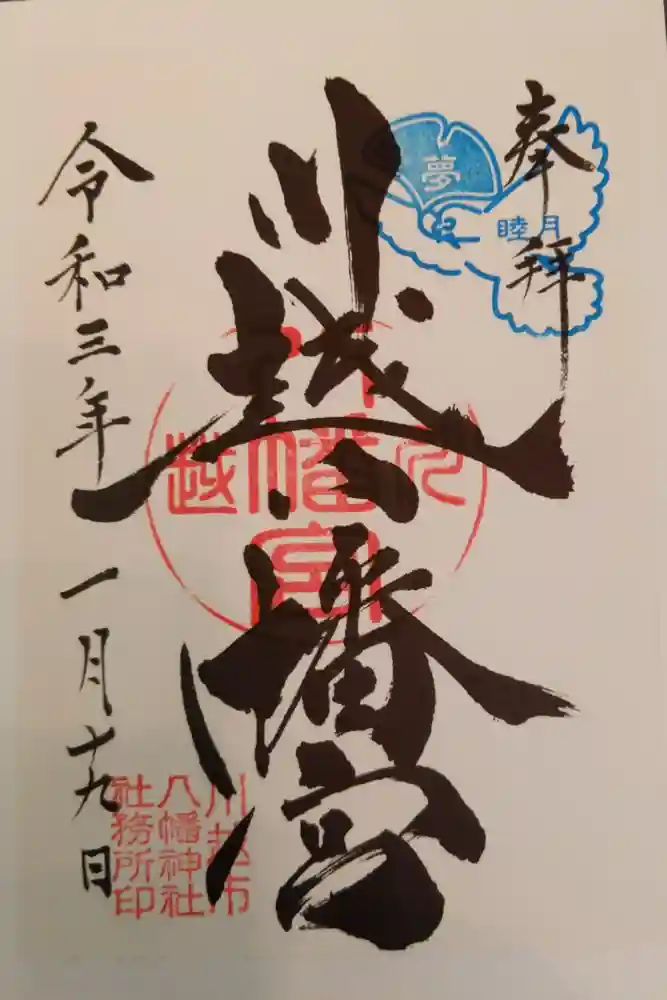 奉拝
夢
睦月
川越八幡宮
川越
八幡宮
令和三年一月十九日
川越市
八幡神社
社務所印